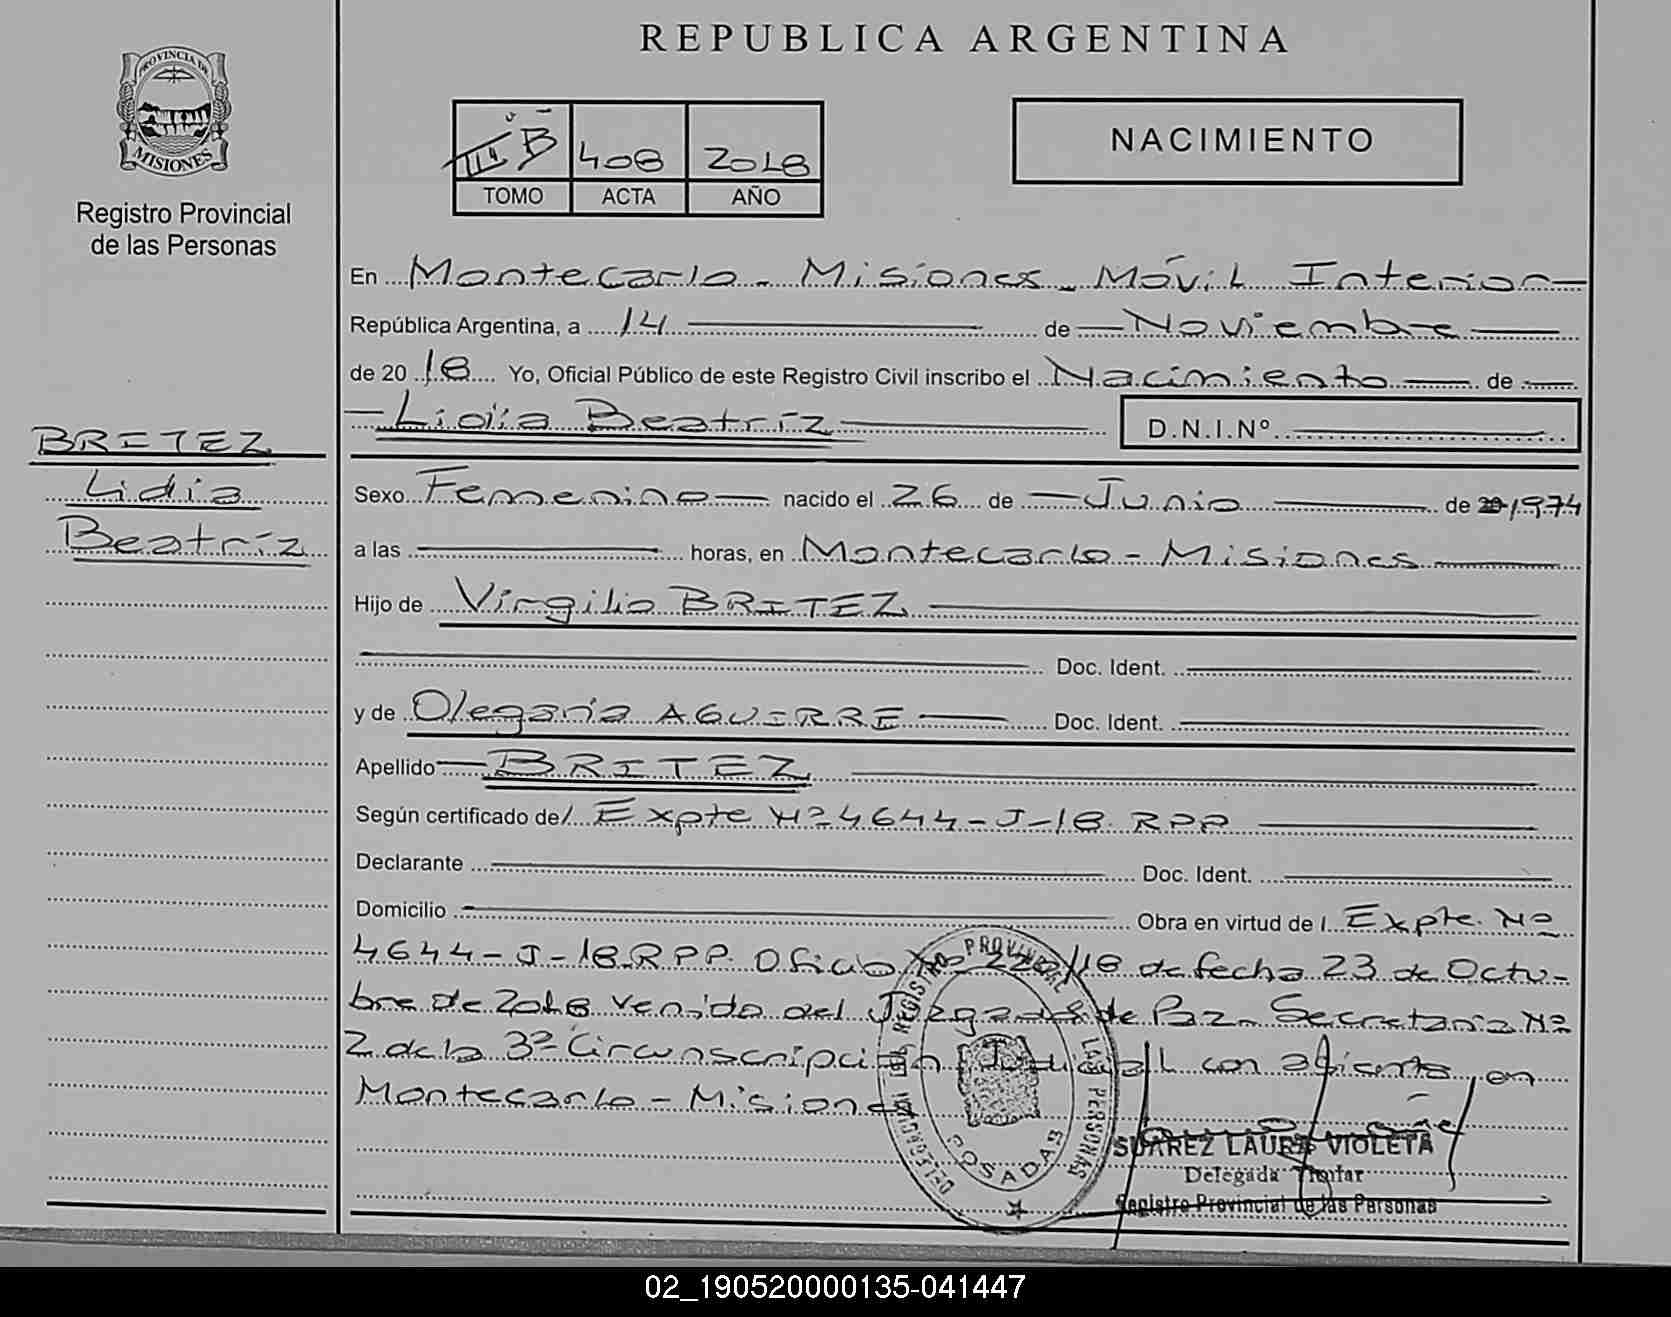 REPUBLICA ARGENTINA
PROVINCIA DE
MISIONES
Registro Provincial
de las Personas
B 408 2018
TOMO ACTA AÑO
NACIMIENTO
En Montecarlo - Misiones - Móvil Interior
República Argentina, a 14 de Noviembre
de 2018 Yo, Oficial Público de este Registro Civil inscribo el Nacimiento de
Lidia Beatríz D.N.I.Nº
BRITEZ
Lidia
Beatríz
Sexo Femenino nacido el 26 de Junio de 1974
a las horas, en Montecarlo - Misiones
Hijo de Virgilio BRITEZ
Doc. Ident.
y de Olegaria AGUIRRE Doc. Ident.
Apellido BRITEZ
Según certificado de/ Expte Nº 4644-J-18 RPP
Declarante Doc. Ident.
Domicilio Obra en virtud de/ Expte. Nº
4644-J-18 RPP. Oficio /18 de fecha 23 de Octu-
bre de 2018 venido del Juzgado de Paz Secretaria Nº
2 de la 3ª Circunscripción Judicial con asiento en
Montecarlo - Misiones
DELEGACION DEL REGISTRO PROVINCIAL DE LAS PERSONAS
POSADAS
SUAREZ LAURA VIOLETA
Delegada Titular
Registro Provincial de las Personas
02_190520000135-041447